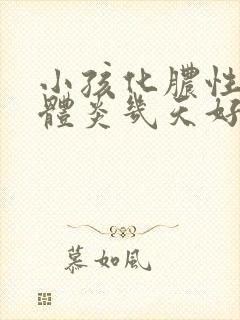 小孩化膿性
體炎幾天好
慕如風